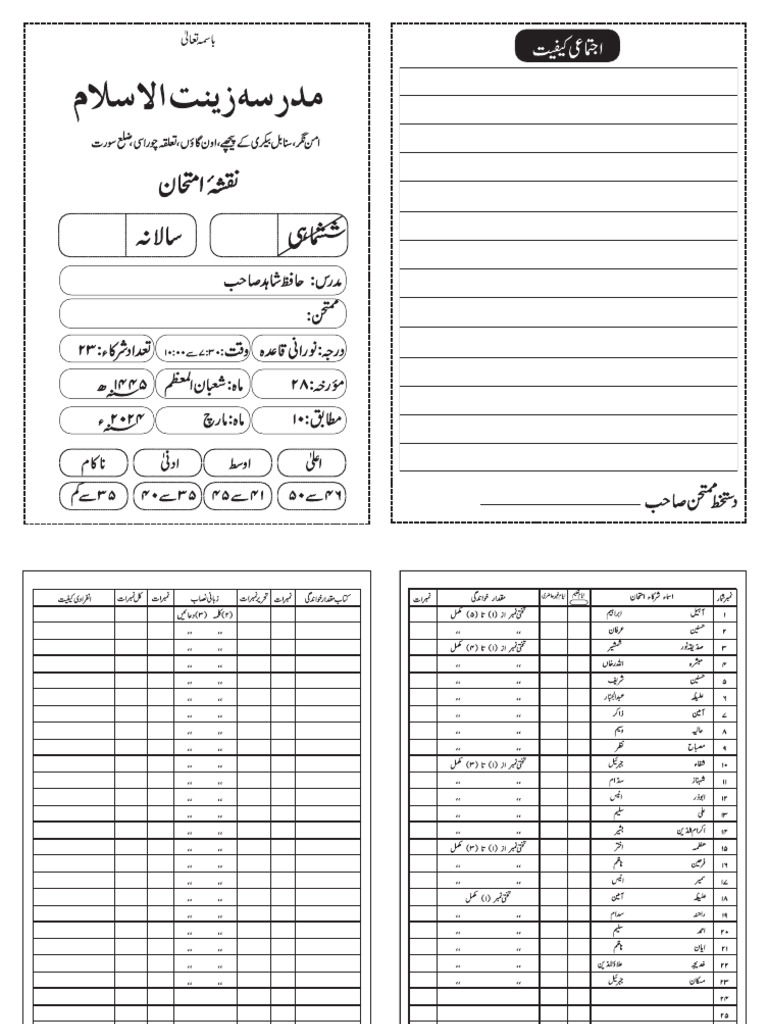 باسمہ تعالیٰ
مدرسہ زینت الاسلام
امن نگر، سنابل بیکری کے پیچھے، اون گاؤں، تعلقہ چوراسی، ضلع سورت
نقشۂ امتحان
ششماہی سالانہ
مدرس: حافظ شاہد صاحب
ممتحن:
درجہ: نورانی قاعدہ وقت: ۷:۳۰ سے ۱۰:۰۰ تعداد شرکاء: ۲۳
مؤرخہ: ۲۸ ماہ: شعبان المعظم ۱۴۴۵ھ
مطابق: ۱۰ ماہ: مارچ ۲۰۲۴ء
اعلیٰ اوسط ادنیٰ ناکام
۴۶ سے ۵۰ ۴۱ سے ۴۵ ۳۵ سے ۴۰ ۳۵ سے کم
اجتماعی کیفیت
دستخط ممتحن صاحب
نمبر شمار اسماء شرکاء امتحان مقدار خواندگی نمبرات
۱ آہیل ابراہیم تختی نمبر از (۱) تا (۵) مکمل
۲ حسنین عرفان ,, ,,
۳ صدیقہ نور شمشیر تختی نمبر از (۱) تا (۴) مکمل
۴ مبشرہ اللہ رکھاں ,, ,,
۵ حسنین شریف ,, ,,
۶ علیکہ عبدالجبار ,, ,,
۷ آمین ذاکر ,, ,,
۸ عالیہ وسیم ,, ,,
۹ مصباح نظر ,, ,,
۱۰ شفاء جبرئیل تختی نمبر از (۱) تا (۳) مکمل
۱۱ شہناز سدام ,, ,,
۱۲ ابوذر انیس ,, ,,
۱۳ علی سلیم ,, ,,
۱۴ اکرام الدین بشیر ,, ,,
۱۵ عظمہ اختر تختی نمبر از (۱) تا (۳) مکمل
۱۶ فرحین ناظم ,, ,,
۱۷ سمیر انیس ,, ,,
۱۸ علیکہ آمین تختی نمبر (۱) مکمل
۱۹ راشد سدام ,, ,,
۲۰ احمد سلیم ,, ,,
۲۱ ایان ناظم ,, ,,
۲۲ خدیجہ علاؤالدین ,, ,,
۲۳ مسکان جبرئیل ,, ,,
۲۴
۲۵
کتاب مقدار خواندگی نمبرات تحریر نمبرات زبانی نصاب نمبرات کل نمبرات انفرادی کیفیت
(۲) کلمہ (۳) دعائیں
,, ,,
,, ,,
,, ,,
,, ,,
,, ,,
,, ,,
,, ,,
,, ,,
,, ,,
,, ,,
,, ,,
,, ,,
,, ,,
,, ,,
,, ,,
,, ,,
,, ,,
,, ,,
,, ,,
,, ,,
,, ,,
,, ,,